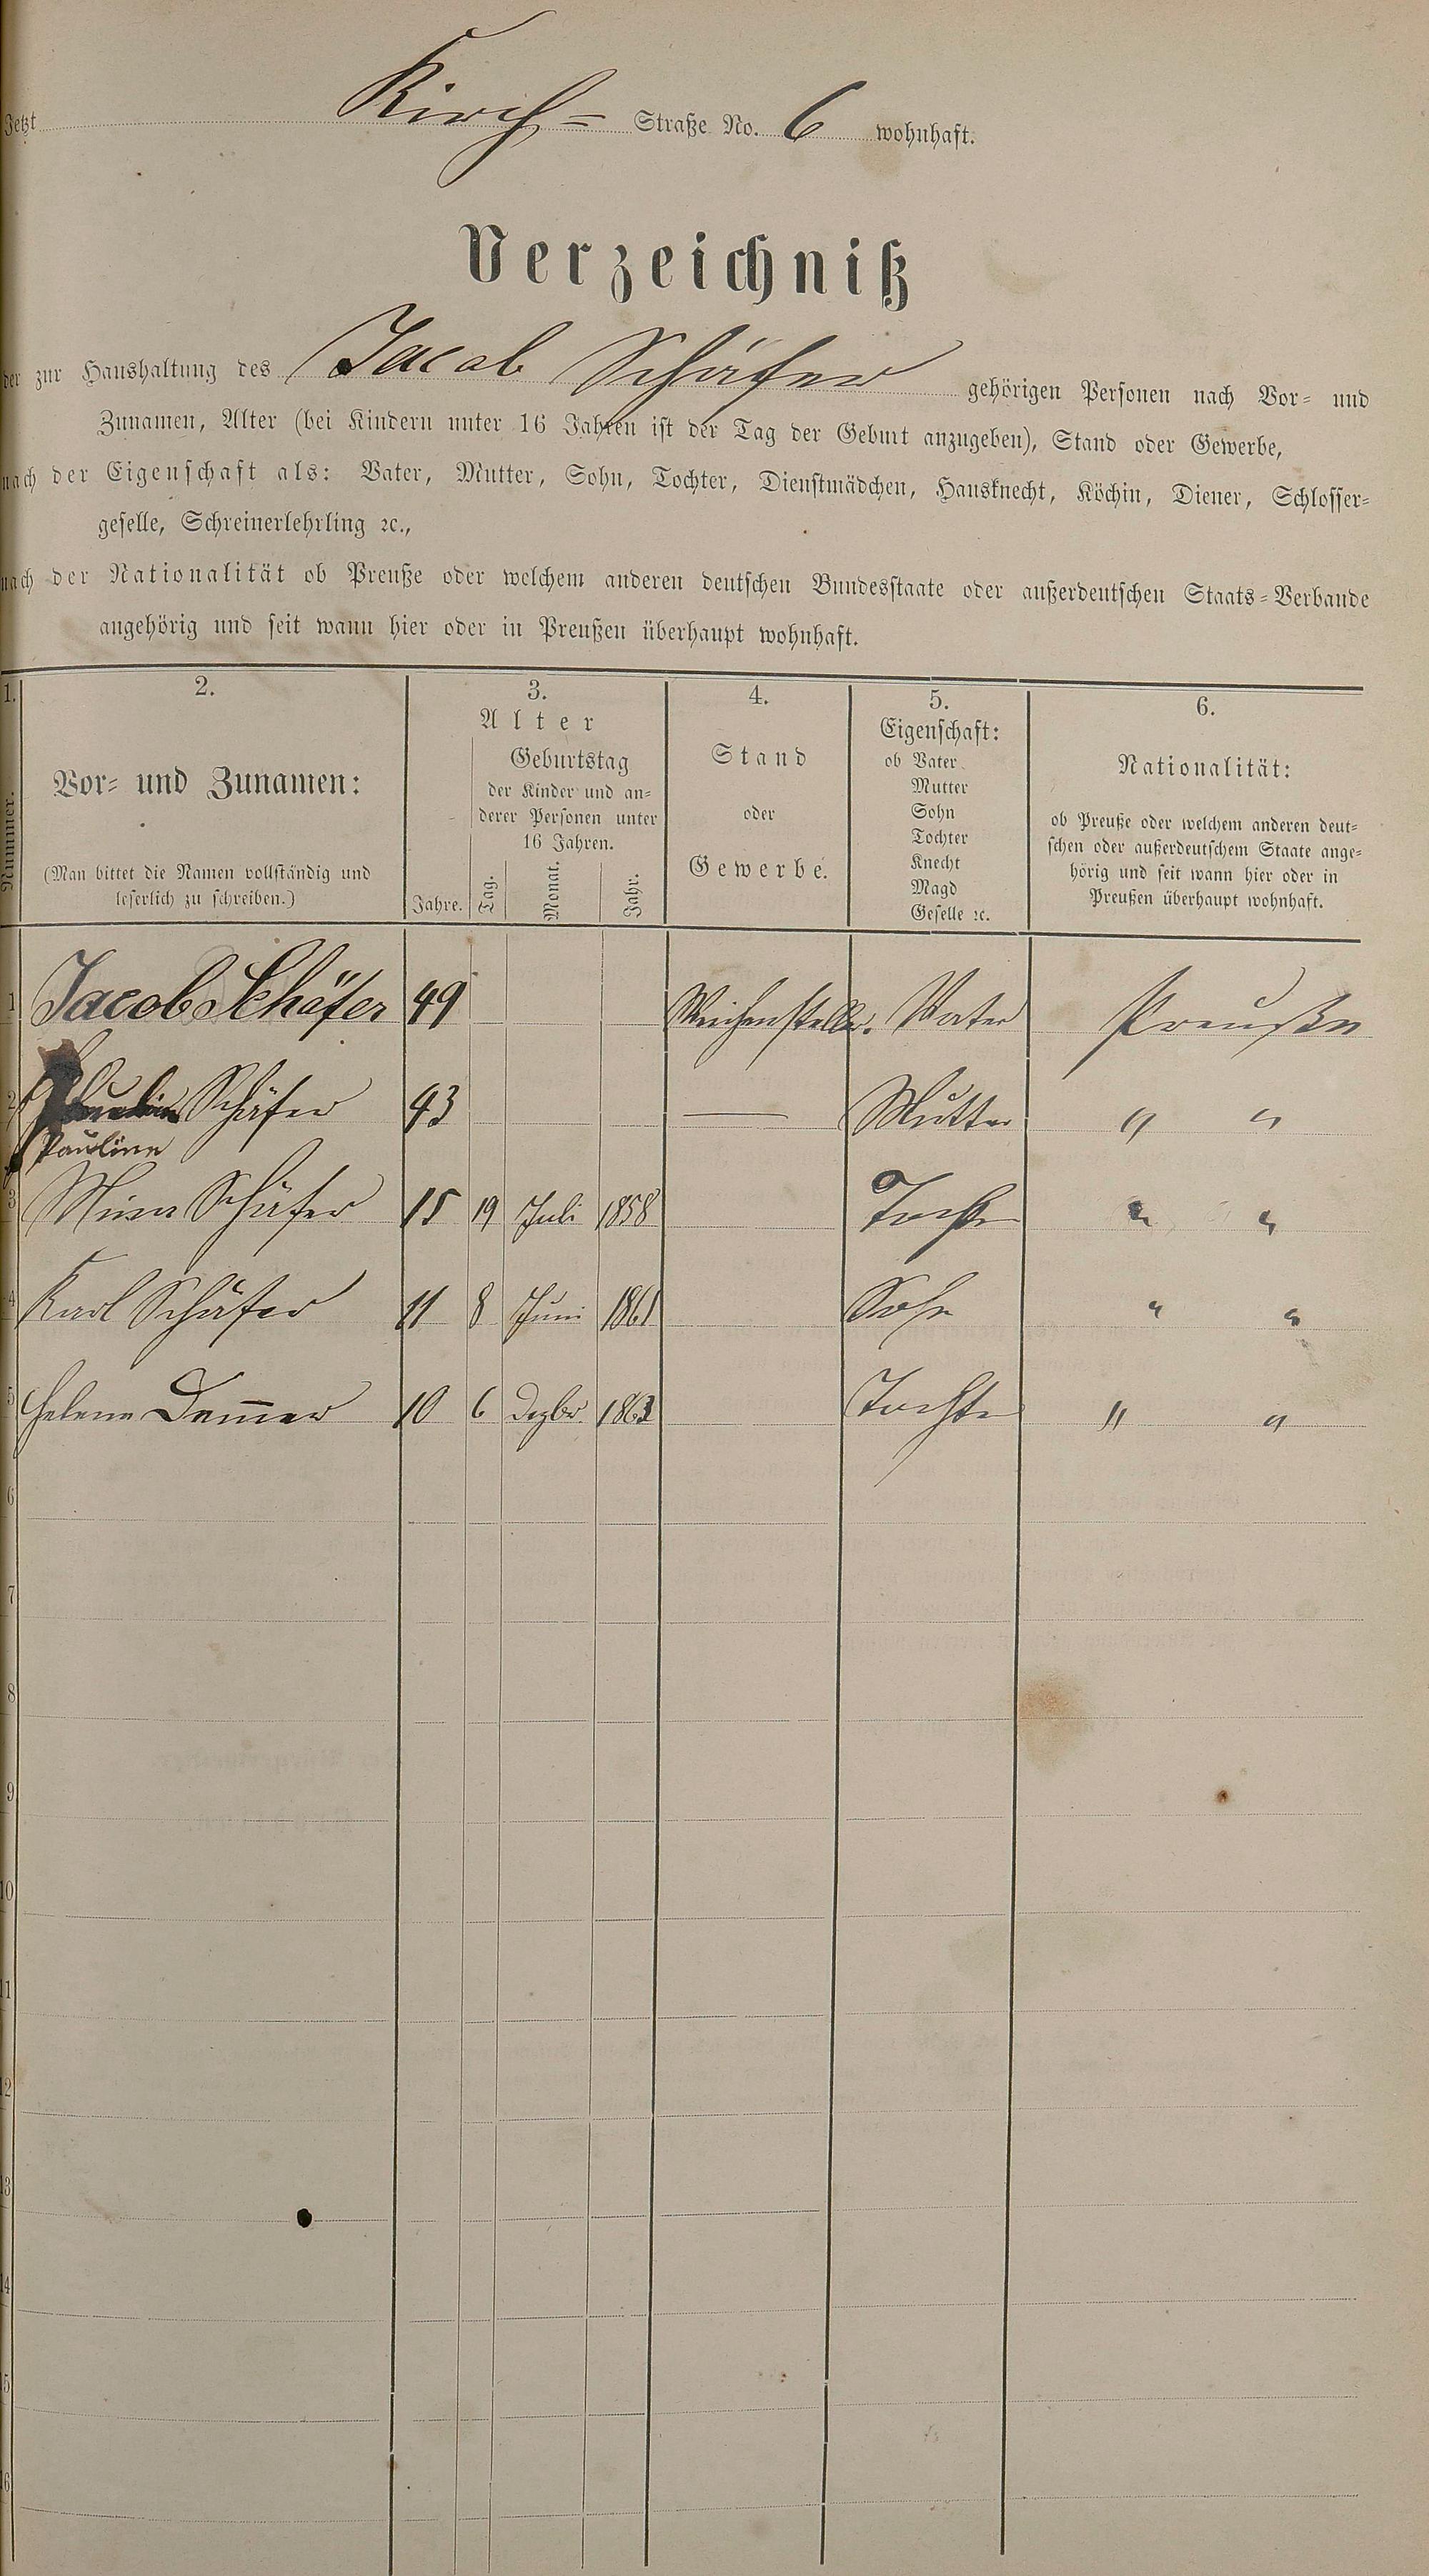 Jetzt Kirch- Straße No. 6 wohnhaft.
Verzeichniß
der zur Haushaltung des Jacob Schäfer gehörigen Personen nach Vor- und
Zunamen, Alter (bei Kindern unter 16 Jahren ist der Tag der Geburt anzugeben), Stand oder Gewerbe,
nach der Eigenschaft als: Vater, Mutter, Sohn, Tochter, Dienstmädchen, Hausknecht, Köchin, Diener, Schlosser-
geselle, Schreinerlehrling ꝛc.,
nach der Nationalität ob Preuße oder welchem anderen deutschen Bundesstaate oder außerdeutschen Staats-Verbande
angehörig und seit wann hier oder in Preußen überhaupt wohnhaft.
1.
Nummer.
2.
Vor- und Zunamen:
(Man bittet die Namen vollständig und
leserlich zu schreiben.)
3.
Alter
Geburtstag
der Kinder und an-
derer Personen unter
16 Jahren.
Jahre. Tag. Monat. Jahr.
4.
Stand
oder
Gewerbe.
5.
Eigenschaft:
ob Vater
Mutter
Sohn
Tochter
Knecht
Magd
Geselle ꝛc.
6.
Nationalität:
ob Preuße oder welchem anderen deut-
schen oder außerdeutschem Staate ange-
hörig und seit wann hier oder in
Preußen überhaupt wohnhaft.
1 Jacob Schäfer 49 Weichensteller. Vater Preuße
2 Schäfer 43 — Mutter " "
Pauline
3 Mina Schäfer 15 19 Juli 1858 Tochter " "
4 Karl Schäfer 11 8 Juni 1861 Sohn " "
5 Helene Demmer 10 6 Dezbr. 1863 Tochter " "
6
7
8
9
10
11
12
13
14
15
16